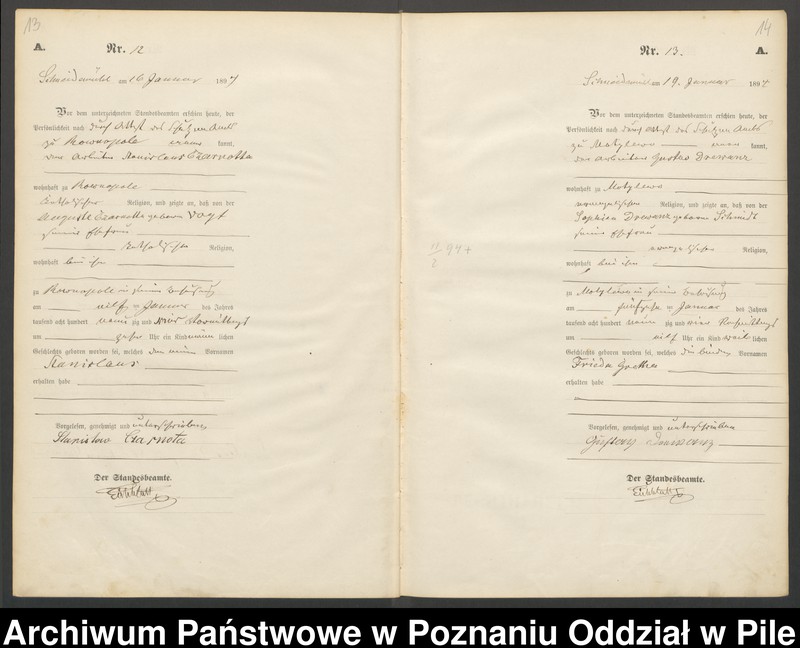 13
A. Nr. 12
Schneidemühl am 16 Januar 1894
Vor dem unterzeichneten Standesbeamten erschien heute, der
Persönlichkeit nach durch Attest des Schulzen Amts
zu Rownopole kannt,
der Arbeiter Stanislaus Czarnotta
wohnhaft zu Rownopole
katholischer Religion, und zeigte an, daß von der
Auguste Czarnotta geborene Vogt
seiner Ehefrau
katholischer Religion,
wohnhaft bei ihm
zu Rownopole in seiner Behausung
am elf ten Januar des Jahres
tausend acht hundert neun zig und vier Vormittags
um zehn Uhr ein Kind männ lichen
Geschlechts geboren worden sei, welches den Vornamen
Stanislaus
erhalten habe
Vorgelesen, genehmigt und unterschrieben
Stanisław Czarnota
Der Standesbeamte.
14
Nr. 13. A.
Schneidemühl am 19. Januar 1894
Vor dem unterzeichneten Standesbeamten erschien heute, der
Persönlichkeit nach durch Attest des Schulzen Amts
zu Motylewo kannt,
der Arbeiter Gustav Drewanz
wohnhaft zu Motylewo
evangelischer Religion, und zeigte an, daß von der
Sophie Drewanz geborene Schmidt
seiner Ehefrau
evangelischer Religion,
wohnhaft bei ihm
zu Motylewo in seiner Behausung
am fünfzehn ten Januar des Jahres
tausend acht hundert neun zig und vier Vormittags
um elf Uhr ein Kind weib lichen
Geschlechts geboren worden sei, welches die beiden Vornamen
Frieda Grethe
erhalten habe
Vorgelesen, genehmigt und unterschrieben
Gustav Drewanz
Der Standesbeamte.
Archiwum Państwowe w Poznaniu Oddział w Pile